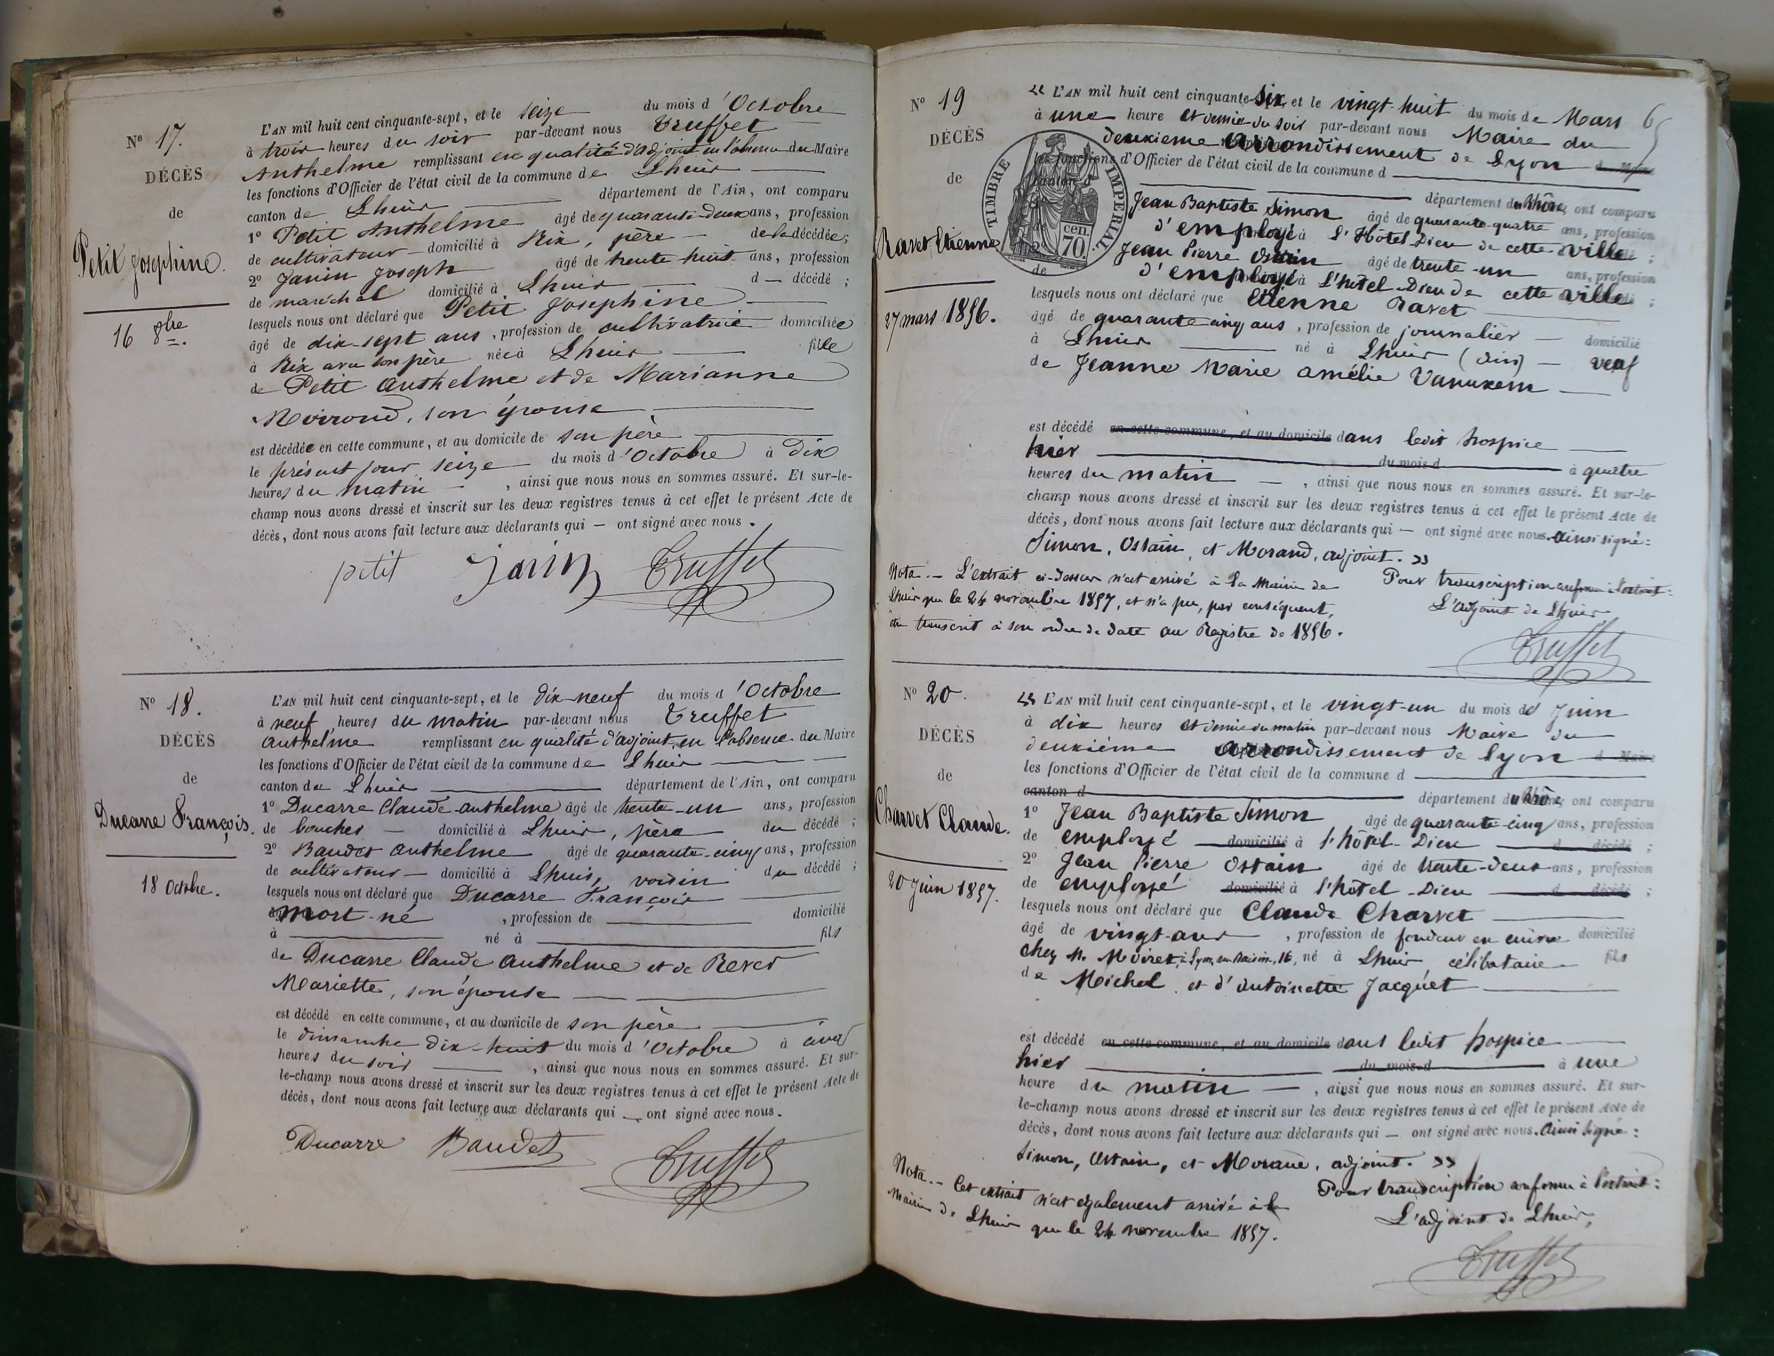 N° 17.
DÉCÈS
de
Petit Josephine.
16 8bre.
L'AN mil huit cent cinquante-sept, et le seize du mois d'Octobre
à trois heures du soir par-devant nous Truffet
Anthelme remplissant en qualité d'adjoint en l'absence du Maire
les fonctions d'Officier de l'état civil de la commune de Lhuis
canton de Lhuis département de l'Ain, ont comparu
1° Petit Anthelme âgé de quarante-deux ans, profession
de cultivateur domicilié à Rix, père de la décédée;
2° Janin Joseph âgé de trente huit ans, profession
de maréchal domicilié à Lhuis d — décédé;
lesquels nous ont déclaré que Petit Josephine
âgé de dix-sept ans, profession de cultivatrice domiciliée
à Rix avec son père née à Lhuis fille
de Petit Anthelme et de Marianne
Morrond, son épouse
est décédée en cette commune, et au domicile de son père
le présent jour seize du mois d'Octobre à dix
heures du matin, ainsi que nous nous en sommes assuré. Et sur-le-
champ nous avons dressé et inscrit sur les deux registres tenus à cet effet le présent Acte de
décès, dont nous avons fait lecture aux déclarants qui — ont signé avec nous.
petit Janin Truffet
N° 18.
DÉCÈS
de
Ducarre François.
18 Octobre.
L'AN mil huit cent cinquante-sept, et le dix-neuf du mois d'Octobre
à neuf heures du matin par-devant nous Truffet
Anthelme remplissant en qualité d'adjoint en l'absence du Maire
les fonctions d'Officier de l'état civil de la commune de Lhuis
canton de Lhuis département de l'Ain, ont comparu
1° Ducarre Claude-Anthelme âgé de trente-un ans, profession
de boucher domicilié à Lhuis, père du décédé;
2° Baudet Anthelme âgé de quarante-cinq ans, profession
de cultivateur domicilié à Lhuis, voisin du décédé;
lesquels nous ont déclaré que Ducarre François
mort-né, profession de domicilié
à né à fils
de Ducarre Claude Anthelme et de
Mariette, son épouse
est décédé en cette commune, et au domicile de son père
le dimanche dix-huit du mois d'Octobre à
heures du soir, ainsi que nous nous en sommes assuré. Et sur-
le-champ nous avons dressé et inscrit sur les deux registres tenus à cet effet le présent Acte de
décès, dont nous avons fait lecture aux déclarants qui — ont signé avec nous.
Ducarre Baudet Truffet
N° 19
DÉCÈS
de
Ravet Etienne
27 mars 1856.
TIMBRE IMPÉRIAL
70 cen.
« L'AN mil huit cent cinquante-six, et le vingt-huit du mois de Mars
à une heure et demie du soir par-devant nous Maire du
deuxième arrondissement de Lyon
les fonctions d'Officier de l'état civil de la commune d
département du Rhône, ont comparu
Jean Baptiste Simon âgé de quarante-quatre ans, profession
d'employé à l'Hôtel-Dieu de cette ville;
Jean Pierre Ostain âgé de trente-un ans, profession
d'employé à l'hôtel-Dieu de cette ville;
lesquels nous ont déclaré que Etienne Ravet
âgé de quarante cinq ans, profession de journalier domicilié
à Lhuis né à Lhuis (Ain) veuf
de Jeanne Marie Amélie Vanuxem
est décédé en cette commune, et au domicile dans ledit hospice
hier du mois d à quatre
heures du matin, ainsi que nous nous en sommes assuré. Et sur-le-
champ nous avons dressé et inscrit sur les deux registres tenus à cet effet le présent Acte de
décès, dont nous avons fait lecture aux déclarants qui — ont signé avec nous. ainsi signé:
Simon, Ostain, et Morand, adjoint. »
Nota. — L'extrait ci-dessus n'est arrivé à la Mairie de
Lhuis que le 24 novembre 1857, et n'a pu, par conséquent,
être transcrit à son ordre de date au Registre de 1856.
Pour transcription conforme à l'extrait:
L'adjoint de Lhuis
Truffet
N° 20.
DÉCÈS
de
Charvet Claude.
20 Juin 1857.
« L'AN mil huit cent cinquante-sept, et le vingt-un du mois de Juin
à dix heures et demie du matin par-devant nous Maire du
deuxième arrondissement de Lyon
les fonctions d'Officier de l'état civil de la commune d
canton d département du Rhône, ont comparu
1° Jean Baptiste Simon âgé de quarante-cinq ans, profession
de employé domicilié à l'hôtel-Dieu d décédé;
2° Jean Pierre Ostain âgé de trente-deux ans, profession
de employé domicilié à l'hôtel-Dieu d décédé;
lesquels nous ont déclaré que Claude Charvet
âgé de vingt ans, profession de fondeur en cuivre domicilié
chez M. à Lyon, 16, né à Lhuis célibataire fils
de Michel et d'Antoinette Jacquet
est décédé en cette commune, et au domicile dans ledit hospice
hier du mois d à une
heure du matin, ainsi que nous nous en sommes assuré. Et sur-
le-champ nous avons dressé et inscrit sur les deux registres tenus à cet effet le présent Acte de
décès, dont nous avons fait lecture aux déclarants qui — ont signé avec nous. ainsi signé:
Simon, Ostain, et Morand, adjoint. »
Nota. — Cet extrait n'est également arrivé à la
Mairie de Lhuis que le 24 novembre 1857.
Pour transcription conforme à l'extrait:
L'adjoint de Lhuis,
Truffet